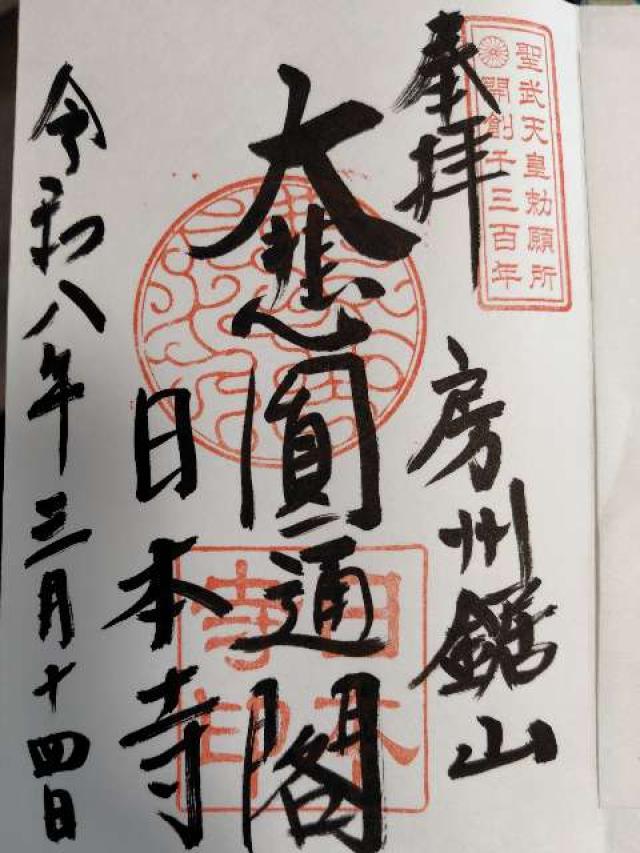 聖武天皇勅願所
開創千三百年
奉拝
房州鋸山
大悲圓通閣
日本寺
令和八年三月十四日
日本
寺印